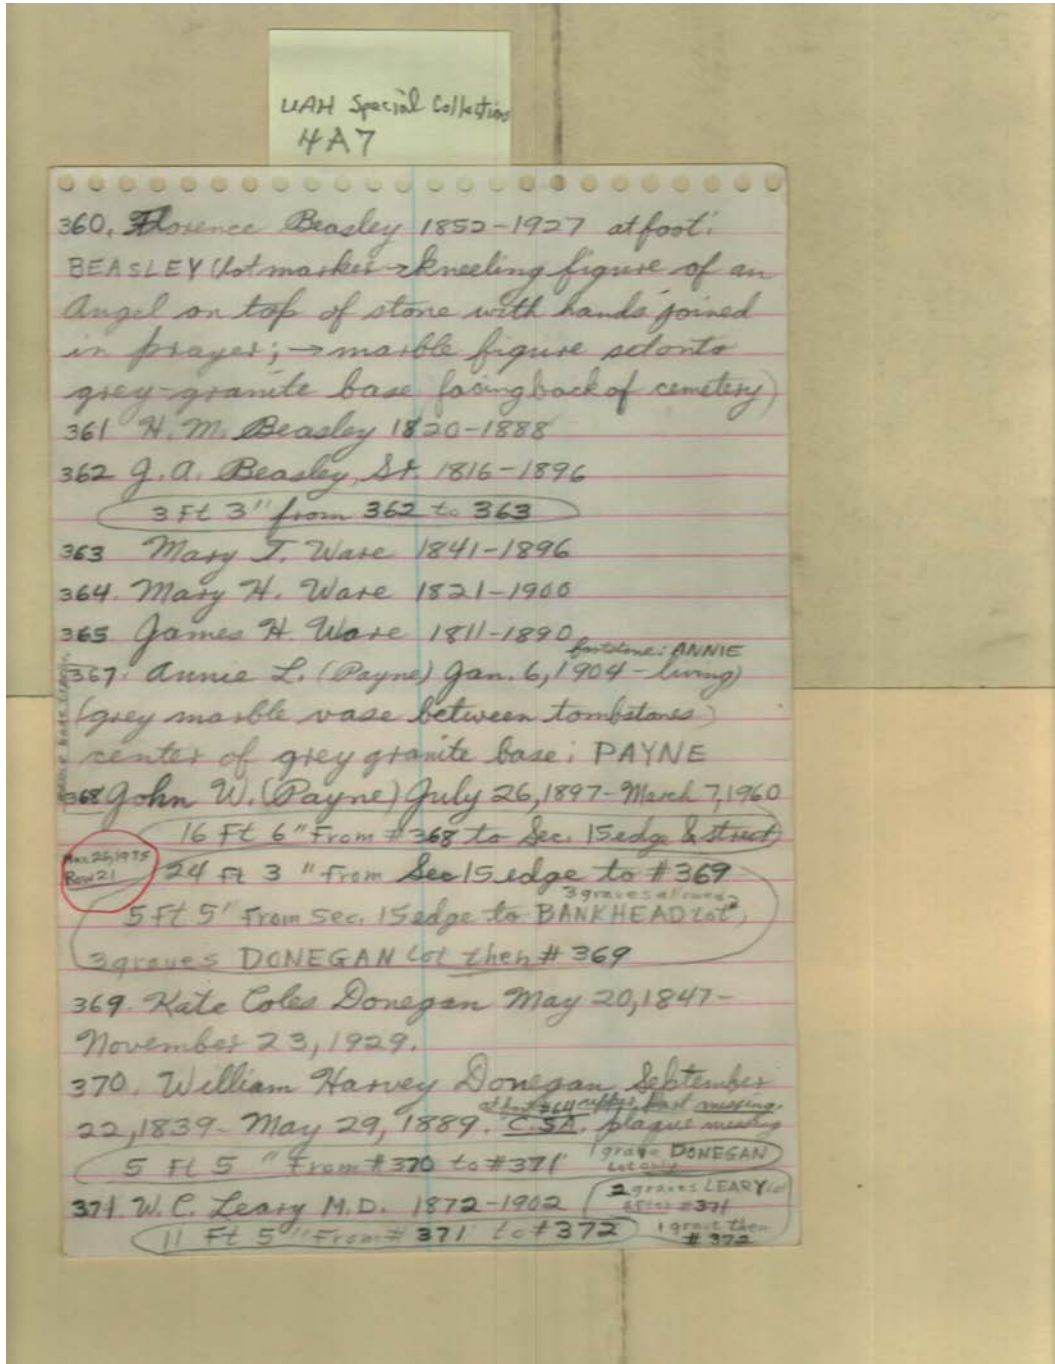 UAH Special Collections
4A7
360. Florence Beasley 1852-1927 at foot:
BEASLEY (lot marker → kneeling figure of an
Angel on top of stone with hands joined
in prayer; → marble figure set onto
grey-granite base facing back of cemetery)
361 H. M. Beasley 1820-1888
362 J. A. Beasley, Sr. 1816-1896
3 Ft 3" from 362 to 363
363 Mary T. Ware 1841-1896
364. Mary H. Ware 1821-1900
365 James H. Ware 1811-1890
footstone: ANNIE
367. Annie L. (Payne) Jan. 6, 1904 - living)
(grey marble vase between tombstones)
center of grey granite base: PAYNE
368 John W. (Payne) July 26, 1897-March 7, 1960
16 Ft 6" From #368 to Sec. 15 edge & street
Mar. 25, 1975
Row 21
24 Ft 3" From Sec 15 edge to #369
3 graves allowed
5 Ft 5" From Sec. 15 edge to BANKHEAD Lot,
3 graves DONEGAN Lot then #369
369. Kate Coles Donegan May 20, 1847-
November 23, 1929.
370. William Harvey Donegan, September
part missing.
22, 1839- May 29, 1889. C.S.A. plaque missing
1 grave DONEGAN
Lot only
5 Ft 5" From #370 to #371
371 W. C. Leary M.D. 1872-1902
2 graves LEARY lot
after #371
1 grave then
#372
11 Ft 5" From #371 to #372